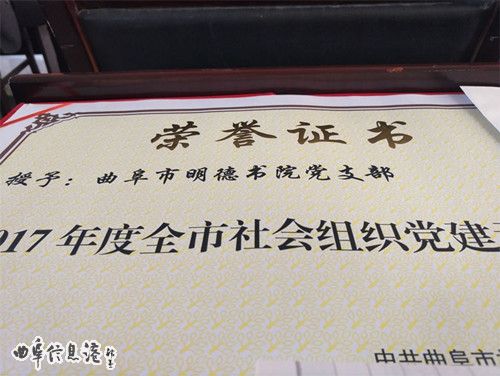 荣誉证书
授予：曲阜市明德书院党支部
017年度全市社会组织党建
中共曲阜市
曲阜信息港